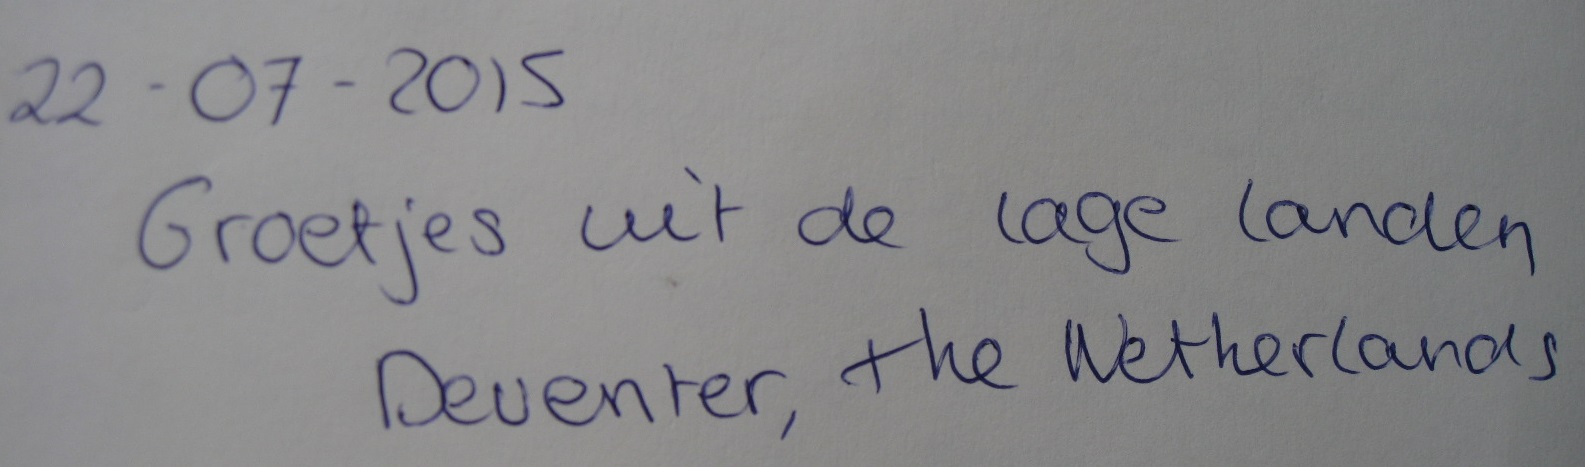 22-07-2015
Groetjes uit de lage landen
Deventer, the Netherlands